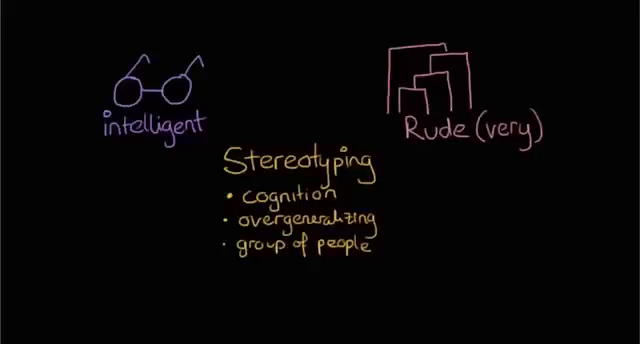 intelligent
Rude (very)
Stereotyping
• cognition
• overgeneralizing
• group of people